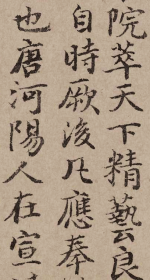 院萃天下精藝良
自時厥後凡應奉
也唐河陽人在宣